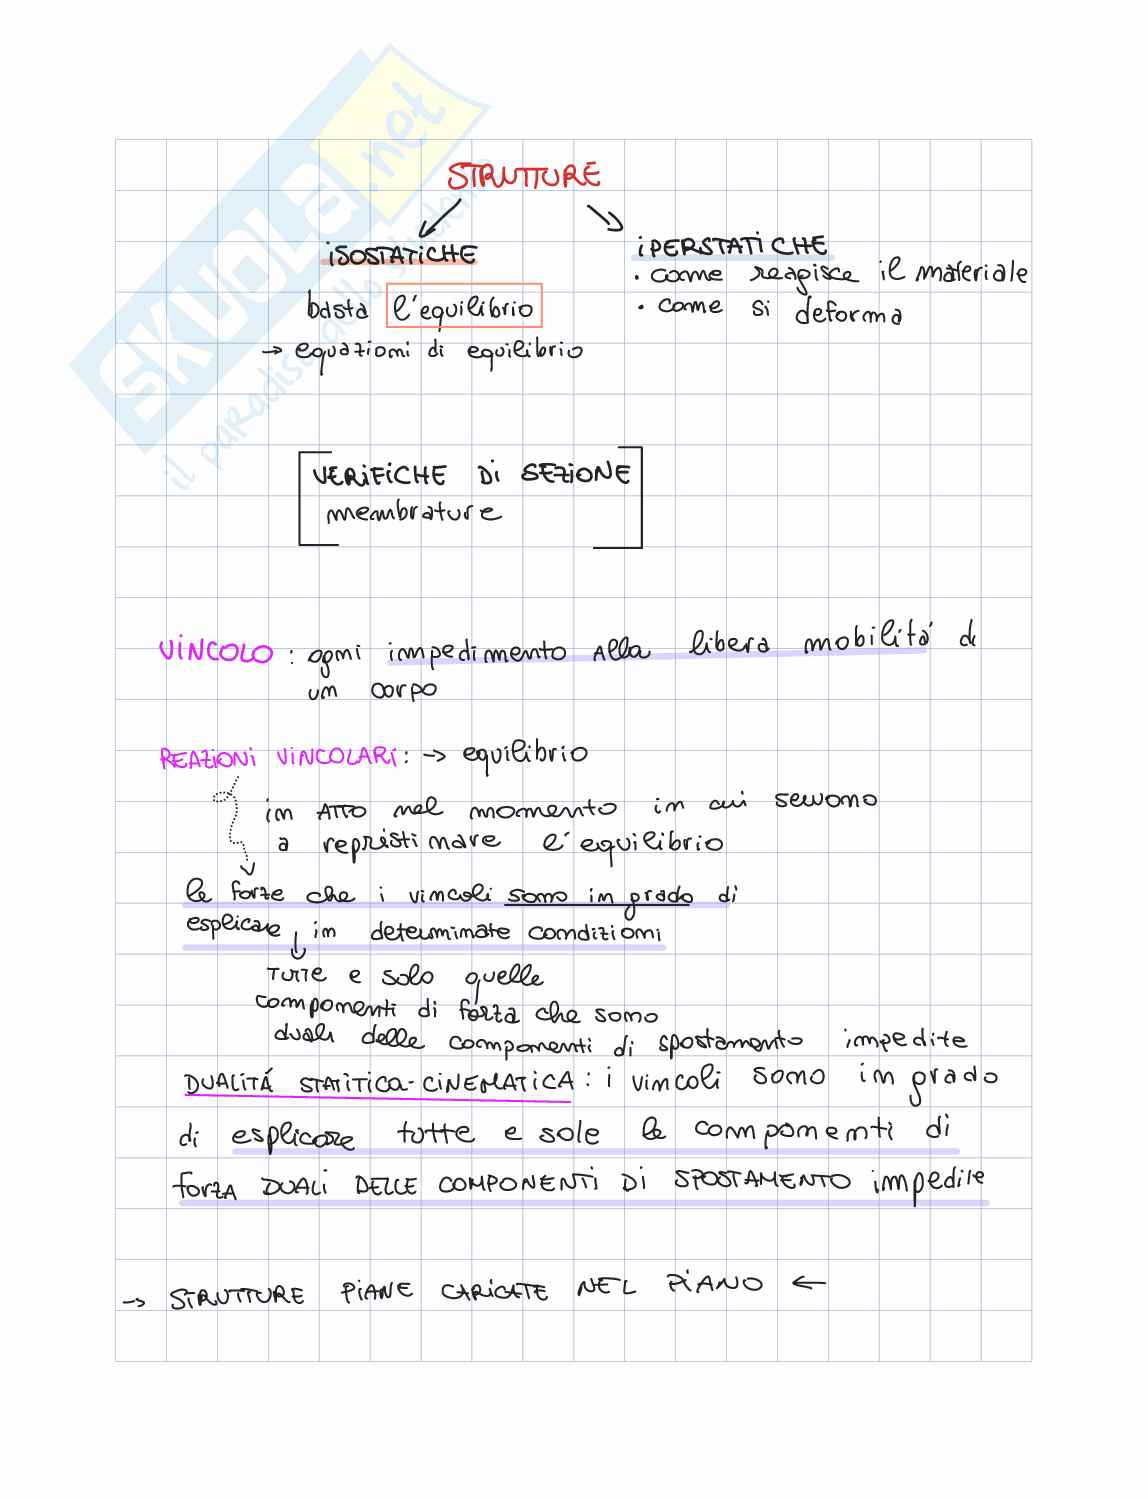 SKUOLA.net
il paradiso dello studente
STRUTTURE
ISOSTATICHE
basta l'equilibrio
→ equazioni di equilibrio
IPERSTATICHE
• come reagisce il materiale
• come si deforma
VERIFICHE DI SEZIONE
membrature
VINCOLO : ogni impedimento alla libera mobilità di
un corpo
REAZIONI VINCOLARI : → equilibrio
in ATTO nel momento in cui servono
a repristinare l'equilibrio
le forze che i vincoli sono in grado di
esplicare in determinate condizioni
TUTTE e solo quelle
componenti di forza che sono
duali delle componenti di spostamento impedite
DUALITÁ STATITICA-CINEMATICA : i vincoli sono in grado
di esplicare tutte e sole le componenti di
forza DUALI DELLE COMPONENTI DI SPOSTAMENTO impedite
→ STRUTTURE PIANE CARICATE NEL PIANO ←